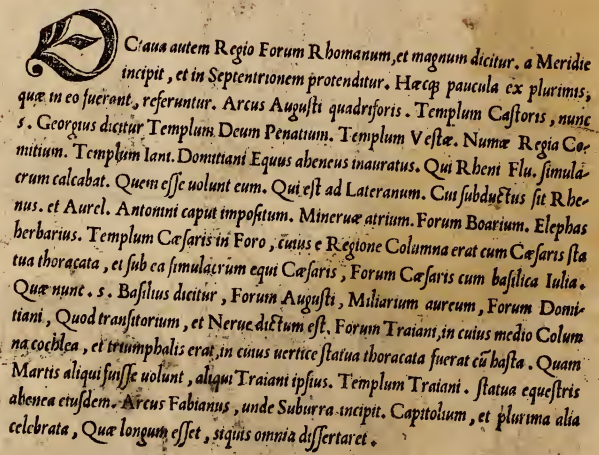 OCtaua autem Regio Forum Rhomanum, et magnum dicitur. a Meridie
incipit, et in Septentrionem protenditur. Hæcq; paucula ex plurimis,
quæ in eo fuerant, referuntur. Arcus Augusti quadriforis. Templum Castoris, nunc
s. Georgius dicitur Templum Deum Penatium. Templum Vestæ. Numæ Regia Co-
mitium. Templum Iani. Domitiani Equus aheneus inauratus. Qui Rheni Flu. simula-
crum calcabat. Quem esse uolunt eum. Qui est ad Lateranum. Cui subductus sit Rhe-
nus. et Aurel. Antonini caput impositum. Mineruæ atrium. Forum Boarium. Elephas
herbarius. Templum Cæsaris in Foro, cuius e Regione Columna erat cum Cæsaris sta
tua thoracata, et sub ea simulacrum equi Cæsaris, Forum Cæsaris cum basilica Iulia.
Quæ nunc. s. Basilius dicitur, Forum Augusti, Miliarium aureum, Forum Domi-
tiani, Quod transitorium, et Nerue dictum est. Forum Traiani, in cuius medio Colum
na cochlea, et triumphalis erat, in cuius uertice statua thoracata fuerat cū hasta. Quam
Martis aliqui fuisse uolunt, aliqui Traiani ipsius. Templum Traiani. statua equestris
ahenea eiusdem. Arcus Fabianus, unde Suburra incipit. Capitolium, et plurima alia
celebrata, Quæ longum esset, siquis omnia dissertaret.